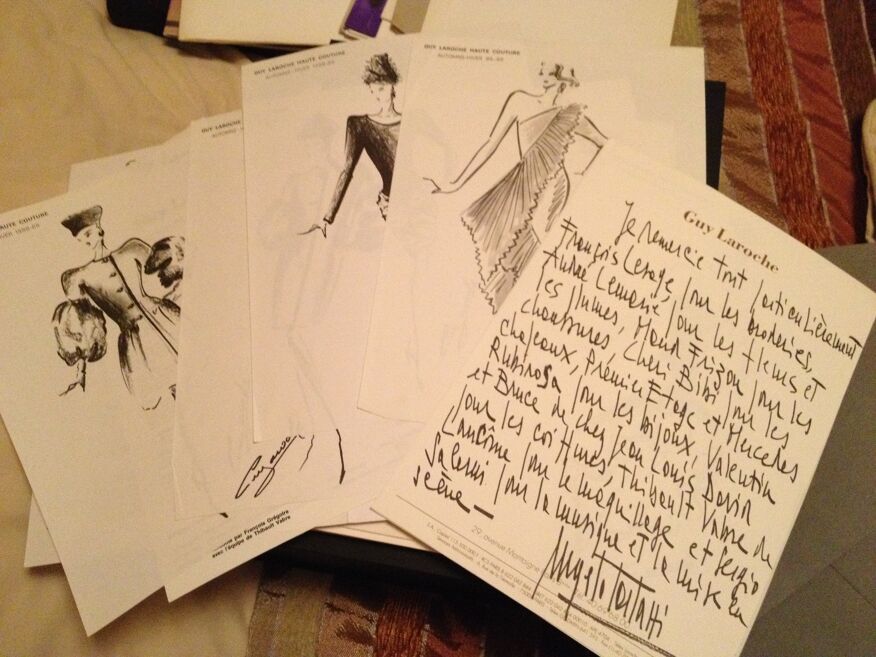 HAUTE COUTURE
GUY LAROCHE
AUTOMNE-
GUY LAROCHE HAUTE COUTURE
AUTOMNE-HIVER 1988-89
GUY LAROCHE HAUTE COUTURE
AUTOMNE-HIVER 88-89
par François Grégoire
avec l'équipe de Thibault Vabre
Guy Laroche
Je remercie tout particulièrement
François Lesage, pour les broderies,
André Lemarié pour les fleurs et
les plumes, Maud Frizon pour les
chaussures, Cheri Bibi pour les
chapeaux, Premier Etage et Mercedes
Rubirosa pour les bijoux, Valentin
et Bruce de chez Jean Louis David
pour les coiffures, Thibault Vabre de
Lancôme pour le maquillage et Sergio
Salerni pour la musique et la mise en
scène -
29, avenue Montaigne